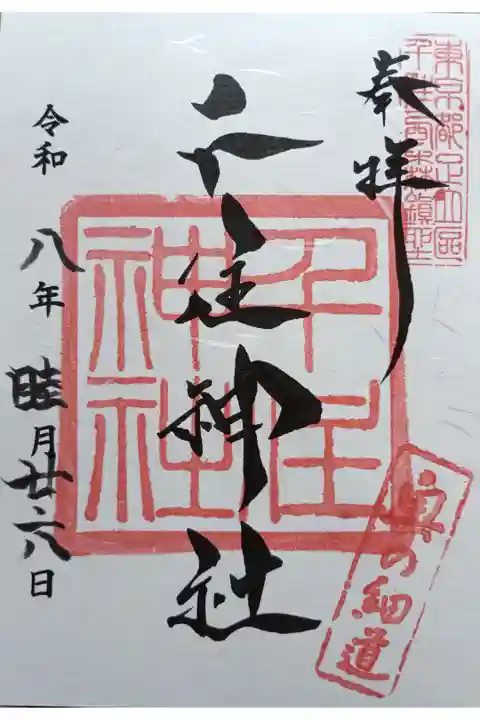 奉拝
東京都足立區
千住西森鎮座
千住神社
千住
神社
奥の細道
令和八年睦月廿六日